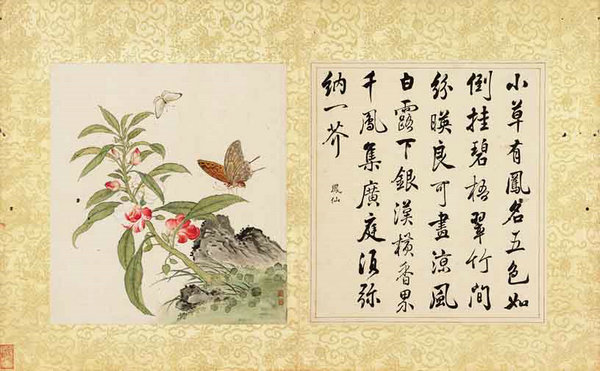 小草有鳳名五色如
倒挂碧梧翠竹間
紛暎良可畫涼風
白露下銀漢橫香
千鳳集廣庭須弥
納一芥
鳳仙